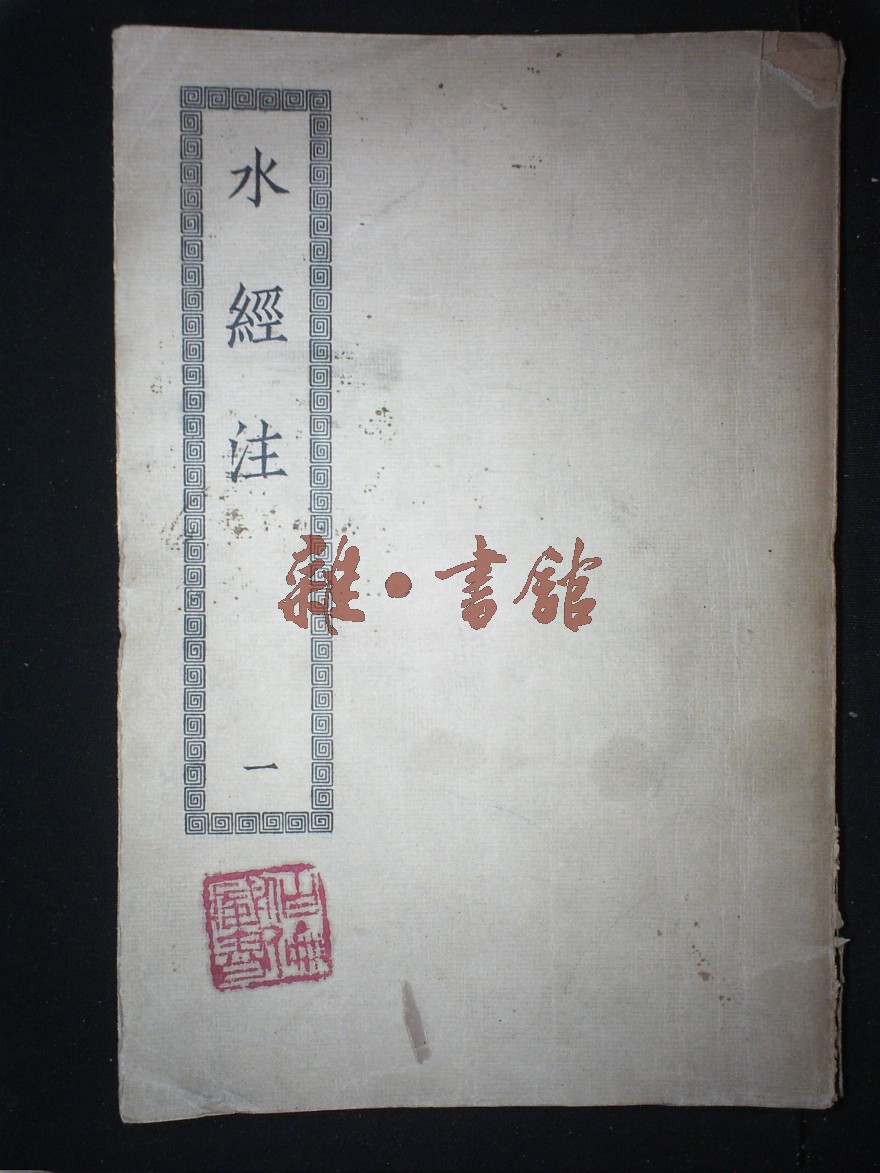 水經注
一
雜·書館